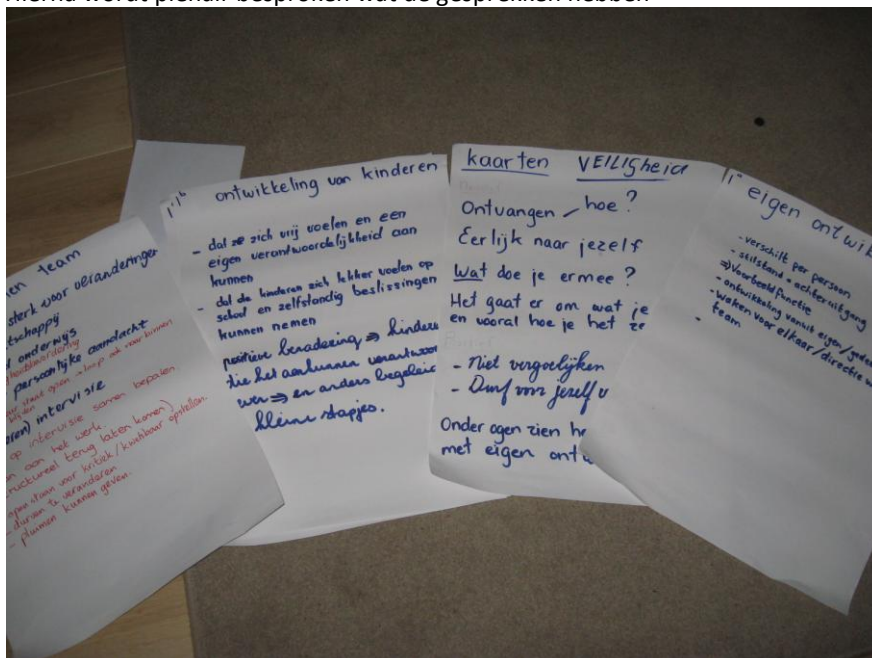 Hierna wordt plenair besproken wat de gesprekken hebben
en team
sterk voor veranderingen
tschappij
onderwijs
persoonlijke aandacht
intervisie
op intervisie samen bepalen
aan het werk.
structureel terug laten komen)
open staan voor kritiek / kwetsbaar opstellen.
- durven te veranderen
- pluimen kunnen geven.
ontwikkeling van kinderen
- dat ze zich vrij voelen en een
eigen verantwoordelijkheid aan
kunnen
- dat de kinderen zich lekker voelen op
school en zelfstandig beslissingen
kunnen nemen
positieve benadering ⇒ kindere
die het aankunnen verantwoor
⇒ en anders begeleid
kleine stapjes.
kaarten VEILIGheid
Ontvangen - hoe?
Eerlijk naar jezelf
Wat doe je ermee?
Het gaat er om wat je
en vooral hoe je het ze
- Niet vergoelijken
- Durf voor jezelf
Onder ogen zien
met eigen ontw
eigen ontwik
- verschilt per persoon
- stilstand = achteruitgang
⇒ Voorbeeldfunctie
- ontwikkeling vanuit eigen/
- waken voor elkaar/directie
team
-